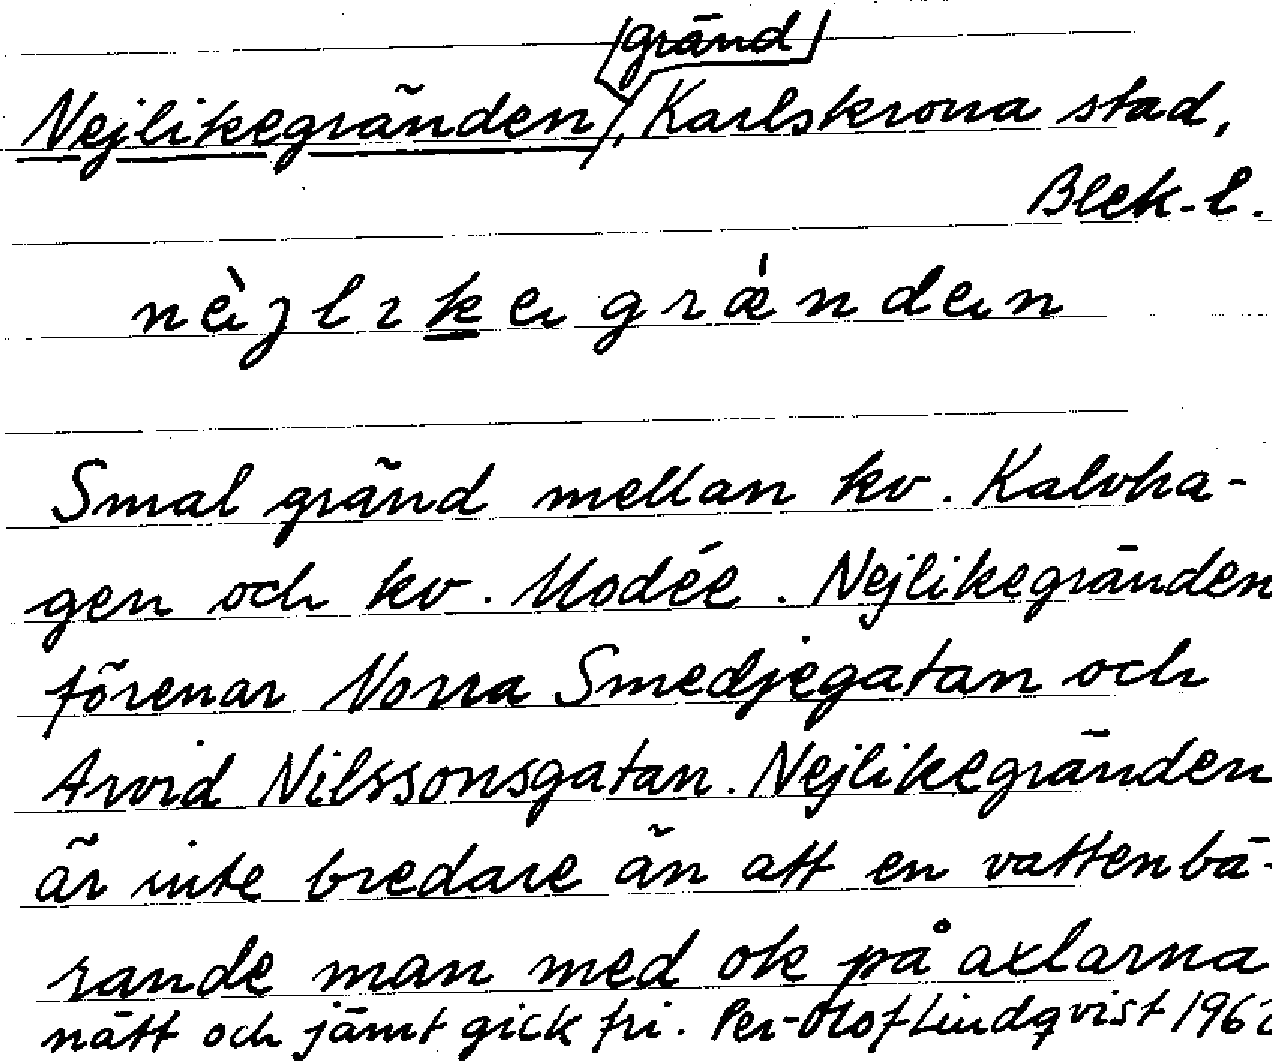 gränd
Nejlikegränden, Karlskrona stad,
Blek. l.
nèjlikegrǽnden
Smal gränd mellan kv. Kalvha-
gen och kv. Modée. Nejlikegränden
förenar Norra Smedjegatan och
Arvid Nilssonsgatan. Nejlikegränden
är inte bredare än att en vattenbä-
rande man med ok på axlarna
nätt och jämt gick fri. Per-Olof Lindqvist